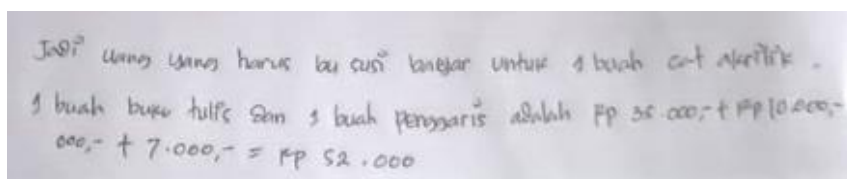 Jadi uang yang harus bu susi banyar untuk 1 buah cat akrilik.
1 buah buku tulis dan 1 buah penggaris adalah Rp 35.000,- + Rp 10.000,-
000,- + 7.000,- = Rp 52.000